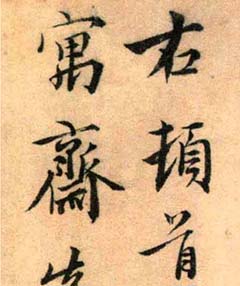 右頓首
寓齋